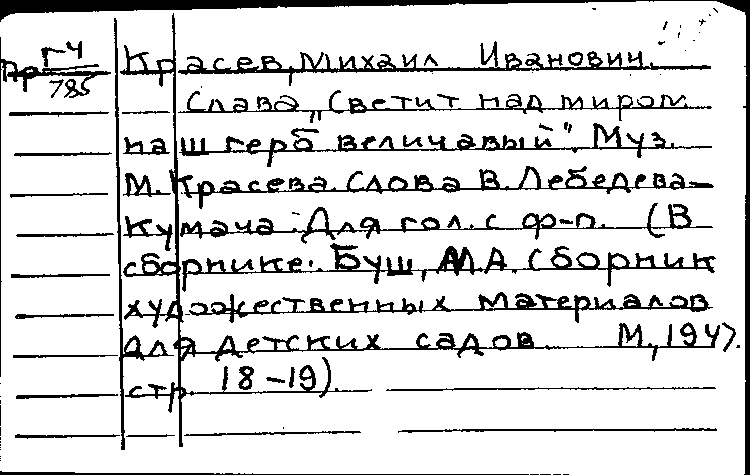 Пр Г4/785 Красев, Михаил Иванович.
Слава „Светит над миром
наш герб величавый". Муз.
М. Красева. Слова В. Лебедева-
Кумача. Для гол. с ф-п. (В
сборнике: Буш, М.А. Сборник
художественных материалов
для детских садов. М., 1947.
стр. 18-19).